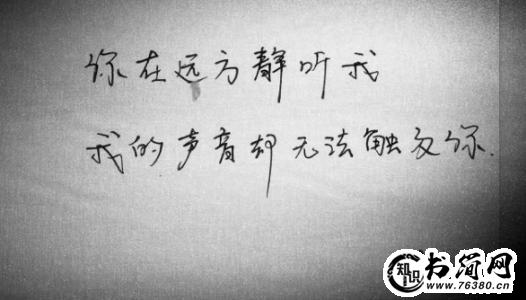 你在远方静听我
我的声音却无法触及你.
知识
书简网
www.76380.cn